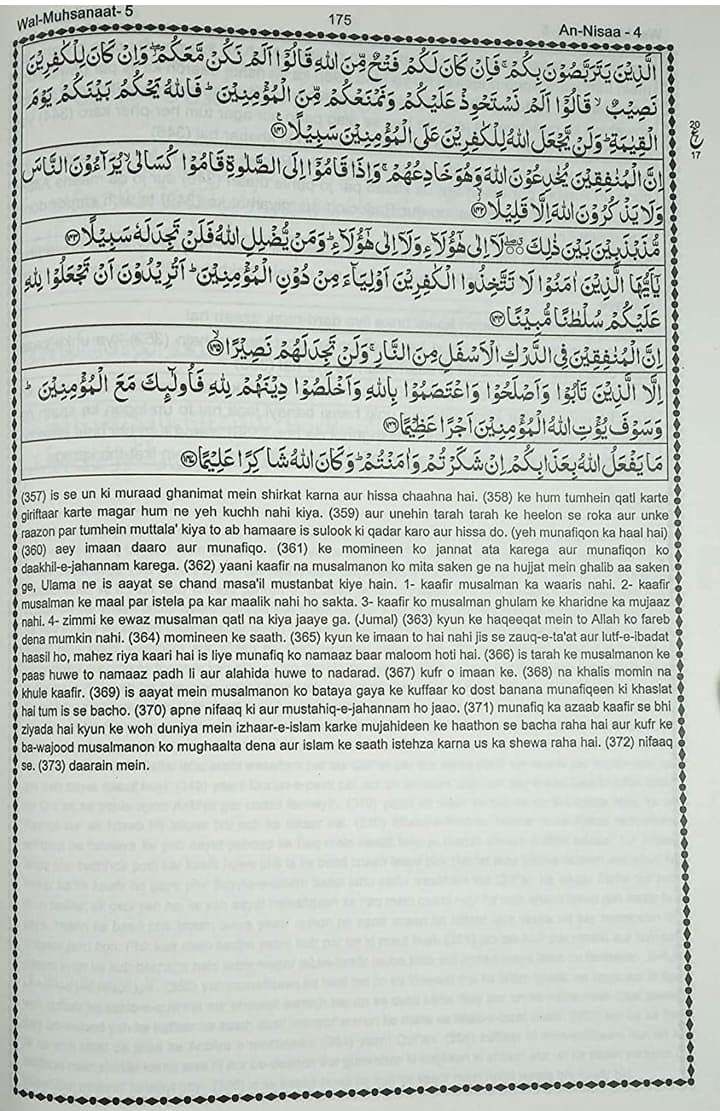 Wal-Muhsanaat- 5
175
An-Nisaa - 4
الَّذِيْنَ يَتَرَبَّصُوْنَ بِكُمْ ۚ فَاِنْ كَانَ لَكُمْ فَتْحٌ مِّنَ اللّٰهِ قَالُوْۤا اَلَمْ نَكُنْ مَّعَكُمْ ۖ وَاِنْ كَانَ لِلْكٰفِرِيْنَ
نَصِيْبٌ ۙ قَالُوْۤا اَلَمْ نَسْتَحْوِذْ عَلَيْكُمْ وَنَمْنَعْكُمْ مِّنَ الْمُؤْمِنِيْنَ ؕ فَاللّٰهُ يَحْكُمُ بَيْنَكُمْ يَوْمَ
الْقِيٰمَةِ ؕ وَلَنْ يَّجْعَلَ اللّٰهُ لِلْكٰفِرِيْنَ عَلَى الْمُؤْمِنِيْنَ سَبِيْلًا ﴿۱۴۱﴾
20
ع
17
اِنَّ الْمُنٰفِقِيْنَ يُخٰدِعُوْنَ اللّٰهَ وَهُوَ خَادِعُهُمْ ۚ وَاِذَا قَامُوْۤا اِلَى الصَّلٰوةِ قَامُوْا كُسَالٰى ۙ يُرَآءُوْنَ النَّاسَ
وَلَا يَذْكُرُوْنَ اللّٰهَ اِلَّا قَلِيْلًا ﴿۱۴۲﴾
مُّذَبْذَبِيْنَ بَيْنَ ذٰلِكَ ۖ لَاۤ اِلٰى هٰۤؤُلَآءِ وَلَاۤ اِلٰى هٰۤؤُلَآءِ ؕ وَمَنْ يُّضْلِلِ اللّٰهُ فَلَنْ تَجِدَ لَهٗ سَبِيْلًا ﴿۱۴۳﴾
يٰۤاَيُّهَا الَّذِيْنَ اٰمَنُوْا لَا تَتَّخِذُوا الْكٰفِرِيْنَ اَوْلِيَآءَ مِنْ دُوْنِ الْمُؤْمِنِيْنَ ؕ اَتُرِيْدُوْنَ اَنْ تَجْعَلُوْا لِلّٰهِ
عَلَيْكُمْ سُلْطٰنًا مُّبِيْنًا ﴿۱۴۴﴾
اِنَّ الْمُنٰفِقِيْنَ فِى الدَّرْكِ الْاَسْفَلِ مِنَ النَّارِ ۚ وَلَنْ تَجِدَ لَهُمْ نَصِيْرًا ﴿۱۴۵﴾
اِلَّا الَّذِيْنَ تَابُوْا وَاَصْلَحُوْا وَاعْتَصَمُوْا بِاللّٰهِ وَاَخْلَصُوْا دِيْنَهُمْ لِلّٰهِ فَاُولٰٓئِكَ مَعَ الْمُؤْمِنِيْنَ ؕ
وَسَوْفَ يُؤْتِ اللّٰهُ الْمُؤْمِنِيْنَ اَجْرًا عَظِيْمًا ﴿۱۴۶﴾
مَا يَفْعَلُ اللّٰهُ بِعَذَابِكُمْ اِنْ شَكَرْتُمْ وَاٰمَنْتُمْ ؕ وَكَانَ اللّٰهُ شَاكِرًا عَلِيْمًا ﴿۱۴۷﴾
(357) is se un ki muraad ghanimat mein shirkat karna aur hissa chaahna hai. (358) ke hum tumhein qatl karte
giriftaar karte magar hum ne yeh kuchh nahi kiya. (359) aur unehin tarah tarah ke heelon se roka aur unke
raazon par tumhein muttala' kiya to ab hamaare is sulook ki qadar karo aur hissa do. (yeh munafiqon ka haal hai)
(360) aey imaan daaro aur munafiqo. (361) ke momineen ko jannat ata karega aur munafiqon ko
daakhil-e-jahannam karega. (362) yaani kaafir na musalmanon ko mita saken ge na hujjat mein ghalib aa saken
ge, Ulama ne is aayat se chand masa'il mustanbat kiye hain. 1- kaafir musalman ka waaris nahi. 2- kaafir
musalman ke maal par istela pa kar maalik nahi ho sakta. 3- kaafir ko musalman ghulam ke kharidne ka mujaaz
nahi. 4- zimmi ke ewaz musalman qatl na kiya jaaye ga. (Jumal) (363) kyun ke haqeeqat mein to Allah ko fareb
dena mumkin nahi. (364) momineen ke saath. (365) kyun ke imaan to hai nahi jis se zauq-e-ta'at aur lutf-e-ibadat
haasil ho, mahez riya kaari hai is liye munafiq ko namaaz baar maloom hoti hai. (366) is tarah ke musalmanon ke
paas huwe to namaaz padh li aur alahida huwe to nadarad. (367) kufr o imaan ke. (368) na khalis momin na
khule kaafir. (369) is aayat mein musalmanon ko bataya gaya ke kuffaar ko dost banana munafiqeen ki khaslat
hai tum is se bacho. (370) apne nifaaq ki aur mustahiq-e-jahannam ho jaao. (371) munafiq ka azaab kaafir se bhi
ziyada hai kyun ke woh duniya mein izhaar-e-islam karke mujahideen ke haathon se bacha raha hai aur kufr ke
ba-wajood musalmanon ko mughaalta dena aur islam ke saath istehza karna us ka shewa raha hai. (372) nifaaq
se. (373) daarain mein.